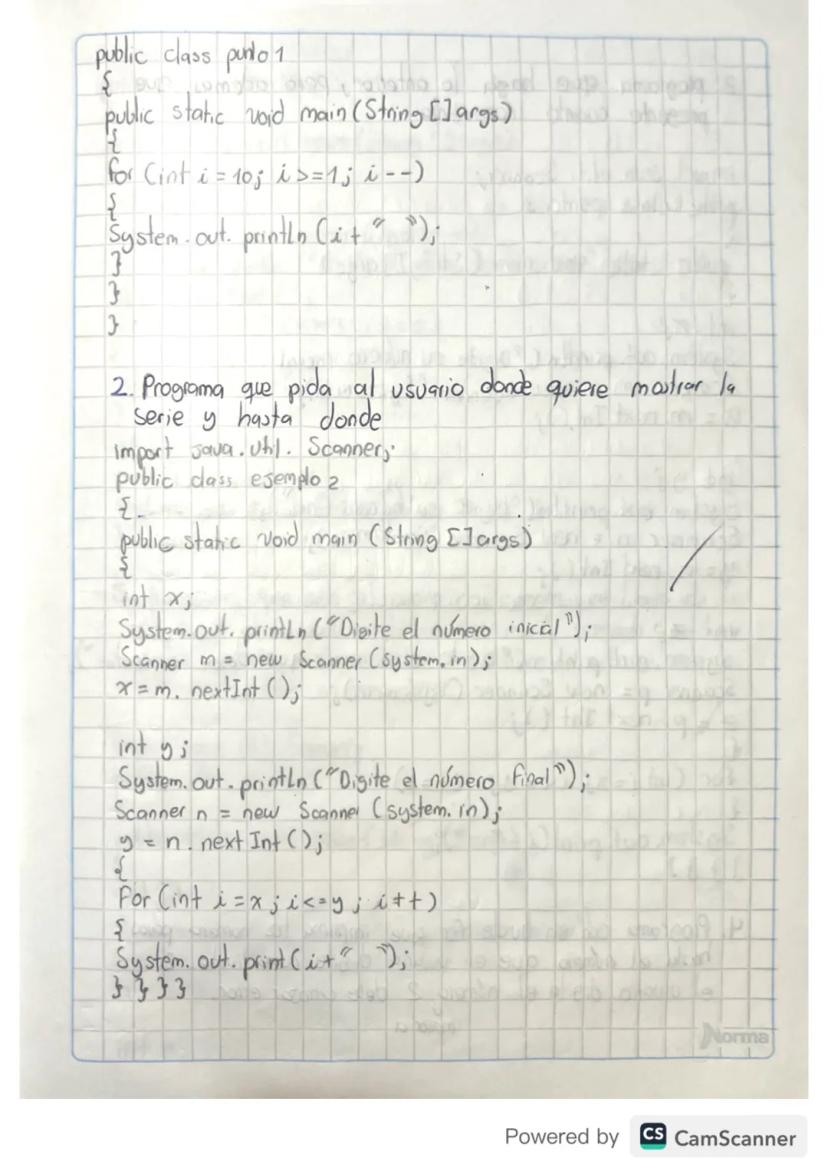 public class punto 1
{
public static void main (String [] args)
{
for (int i = 10; i >= 1; i --)
{
System.out. println (i + " ");
}
}
}
2. Programa que pida al usuario donde quiere mostrar la
serie y hasta donde
import java.util. Scanner;
public class ejemplo 2
{
public static void main (String [] args)
{
int x;
System.out. println ("Digite el número inicial");
Scanner m = new Scanner (system.in);
x = m. nextInt ();
int y;
System.out. println ("Digite el número final");
Scanner n = new Scanner (system.in);
y = n. next Int ();
{
For (int i = x; i <= y; i ++)
{
System.out. print (i + " ");
} } } }
Norma
Powered by CS CamScanner